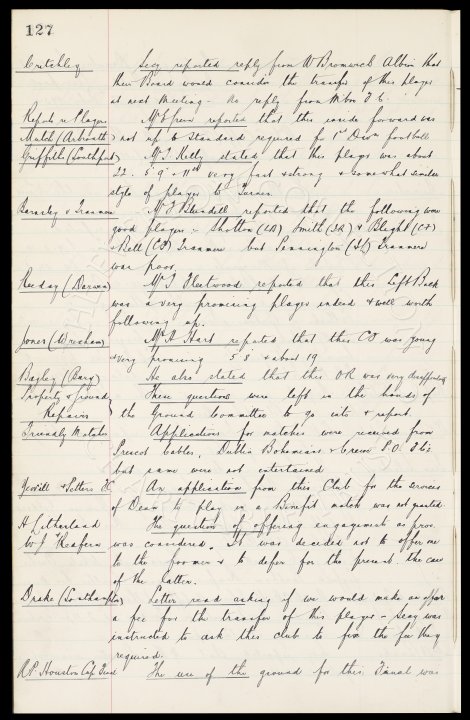 127
Critchley Secy reported reply from W Bromwich Albion that
their Board would consider the transfer of this player
at next Meeting - No reply from Mbro F C.
Reports re Players Mr E Green reported that this inside forward was
Mutch (Arbroath) not up to standard required for 1st Divn football
Griffith (Southport) Mr T. Kelly stated that this player was about
22. 5' 9" - 11 st very fast & strong & somewhat similar
style of player to Turner.
Barnsley v Tranmere Mr J Blundell reported that the following were
good players :- Shotton (LB) Smith (IR) & Blight (CF)
& Bell (CF) Tranmere but Pennington Tranmere
was poor
(Darwen) Mr J Fleetwood reported that this Left Back
was a very promising player indeed & well worth
following up.
Jones (Wrexham) Mr A Hart reported that this CF was young
& very promising 5' 8 & about 19
Bagley (Bury) He also stated that this OR was very disappointing
Property & Ground These questions were left in the hands of
Repairs the Ground Committee to go into & report.
Friendly Matches Applications for matches were received from
Prescot Cables, Dublin Bohemians & Crewe P.O. F.C.
but same were not entertained
Yeovil & Petters FC An application from this Club for the services
of Dean to play in a Benefit match was not granted
H Litherland The question of offering engagement as pros.
W J was considered. It was decided not to offer one
to the former & to defer for the present the case
of the latter.
Drake (Southampton) Letter read asking if we would make an offer
a fee for the transfer of this player - Secy was
instructed to ask this club to fix the fee they
required.
R P Houston Cup Final The use of the ground for this Final was